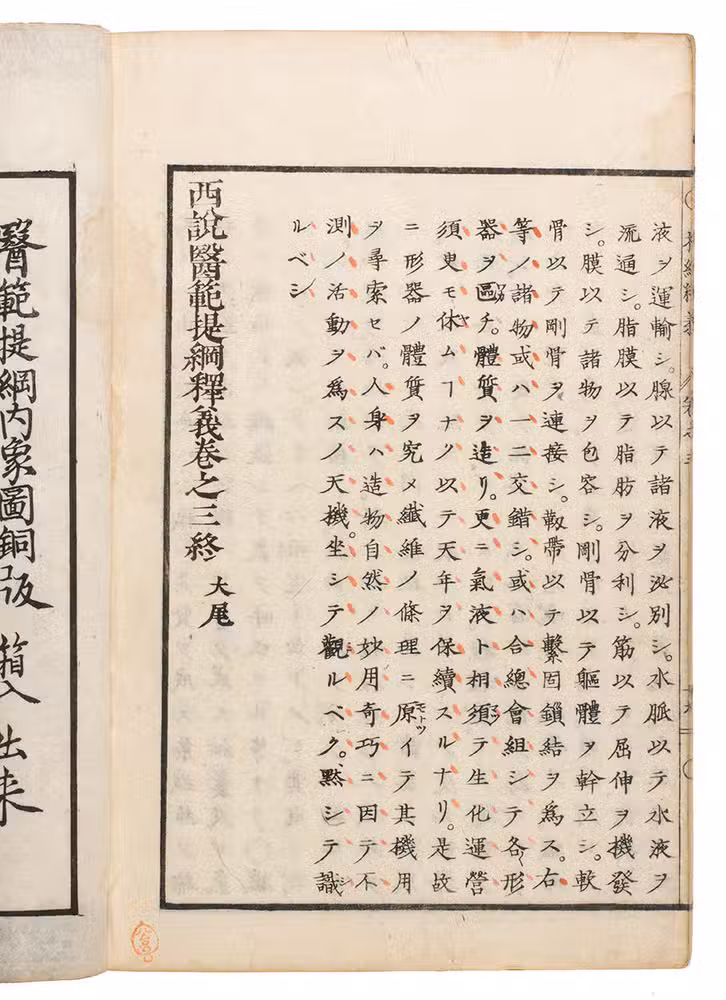 液ヲ運輸シ。腺以テ諸液ヲ泌別シ。水脈以テ水液ヲ
流通シ。脂膜以テ脂肪ヲ分利シ。筋以テ屈伸ヲ機發
シ。膜以テ諸物ヲ包容シ。剛骨以テ軀體ヲ幹立シ。軟
骨以テ剛骨ヲ連接シ。靱帶以テ繫固鎖結ヲ爲ス。右
等ノ諸物或ハ一二交錯シ。或ハ合總會組シテ各形
器ヲ區チ。體質ヲ造リ。更ニ氣液ト相須テ生化運營
須臾モ休ムヿナク以テ天年ヲ保續スルナリ。是故
ニ形器ノ體質ヲ究メ纖維ノ條理ニ原イテ其機用
ヲ尋索セバ。人身ハ造物自然ノ妙用奇巧ニ因テ不
測ノ活動ヲ爲スノ天機。坐シテ觀ルベク。黙シテ識
ルベシ
西說醫範提綱釋義卷之三終 大尾
醫範提綱內象圖銅版 箱入 出来